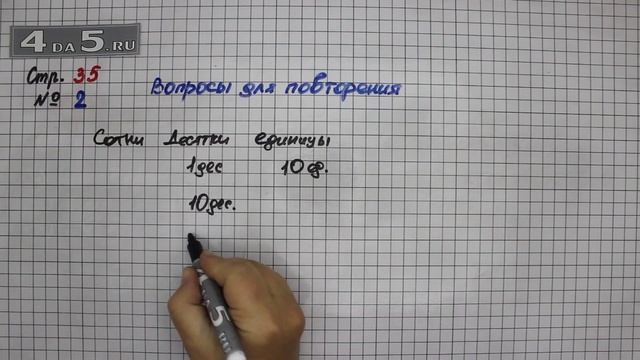 4DA5.RU
Стр. 35
№ 2
Вопросы для повторения
Сотни Десятки единицы
1дес 10 ед.
10дес.